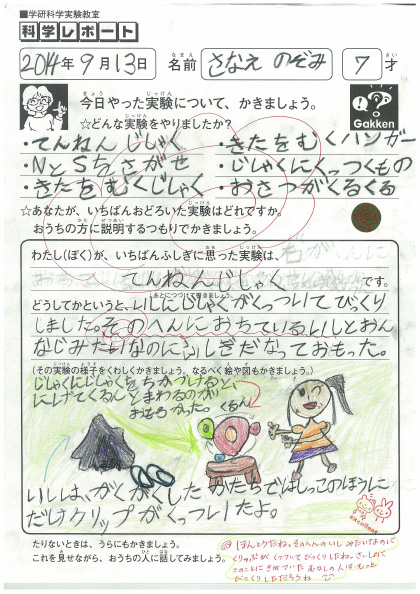 ■学研科学実験教室
科学レポート
2014年9月13日 名前 なまえ さなえ のぞみ 7才 さい
今日やった実験について、かきましょう。
☆どんな実験をやりましたか?
Gakken
・てんねんじしゃく ・きたをむくハンガー
・NとSをさがせ ・じしゃくにくっつくもの
・きたをむくじしゃく ・おさつがくるくる
☆あなたが、いちばんおどろいた実験はどれですか。
おうちの方に説明するつもりでかきましょう。
わたし(ぼく)が、いちばんふしぎに思った実験は、
てんねんじしゃく です。
あとにつづけて書きましょう。
どうしてかというと、いしにじしゃくがくっついてびっくり
しました。そのへんにおちているいしとおん
なじみたいなのにふしぎだなっておもった。
(その実験の様子をくわしくかきましょう。なるべく絵や図もかきましょう。)
じしゃくにじしゃくをちかづけると、
にげてくるんとまわるのが
おもしろかった。 くるん
いしは、がくがくしたかたちではしっこのほうに
だけクリップがくっついたよ。
たりないときは、うらにもかきましょう。
これを見せながら、おうちの人に話してみましょう。
ほんとうだね。そのへんのいしみたいなのに
くりっぷがくっついてびっくりしたね。さいしょに
このことにきがついたむかしの人は、もっと
びっくりしただろうね